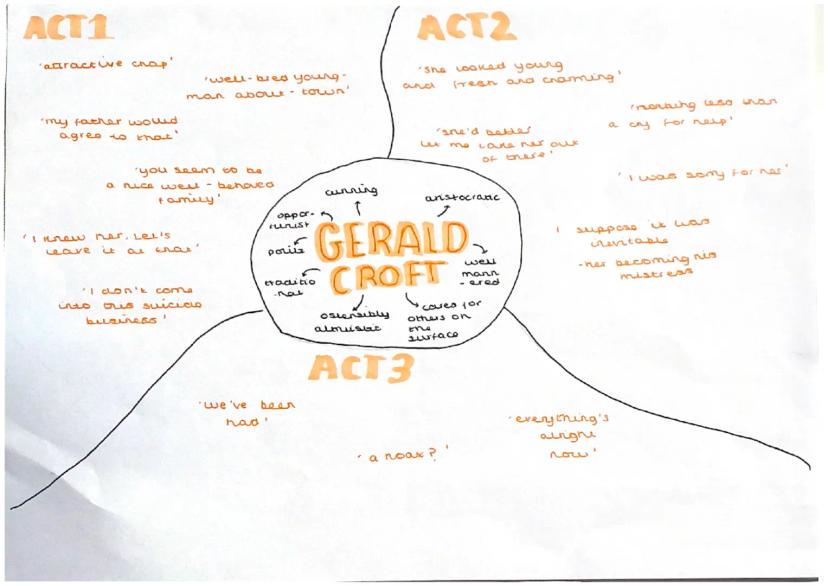 ACT1
'attractive chap'
'well-bred young-
man about-town'
'my father would
agree to that'
'you seem to be
a nice well-behaved
family'
'I knew her. Let's
leave it at that'
'I don't come
into this suicide
business'
ACT2
'she looked young
and fresh and charming'
'nothing less than
a cry for help'
'she'd better
let me take her out
of there'
'I was sorry for her'
I suppose it was
inevitable
-her becoming his
mistress
cunning
aristocratic
oppor-
tunist
polite
traditio
-nal
GERALD
CROFT
well
mann
-ered
ostensibly
altruistic
cares for
others on
the
surface
ACT3
'we've been
had'
'a hoax?'
'everything's
alright
now'